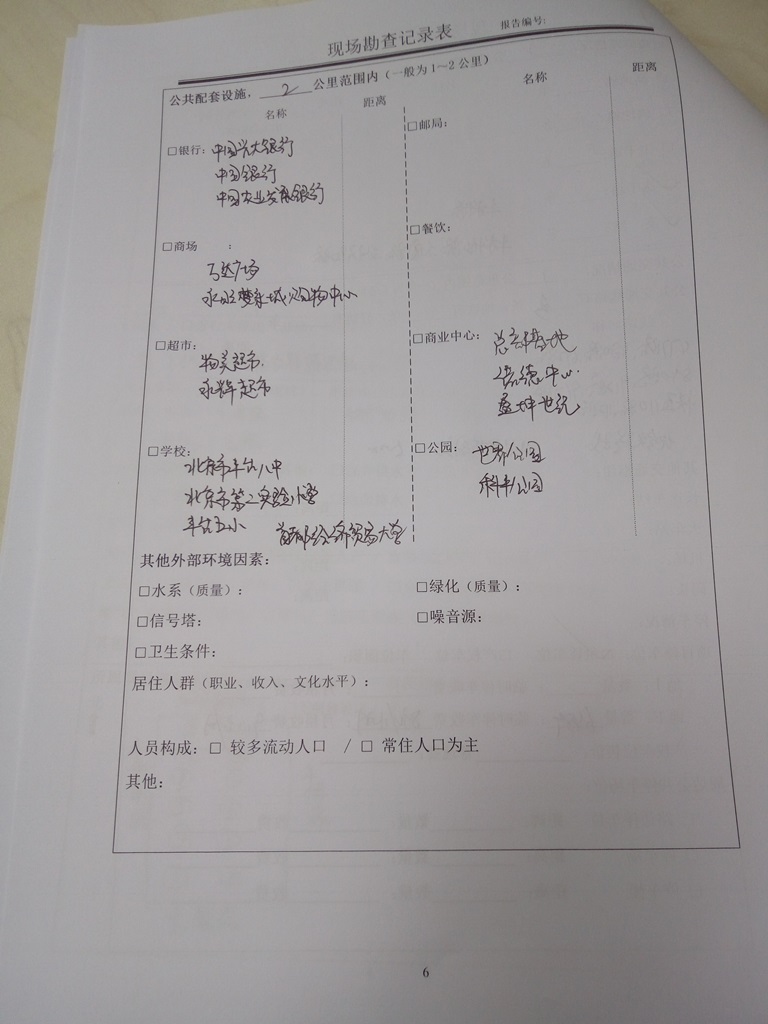 现场勘查记录表
报告编号:
公共配套设施, 2 公里范围内（一般为1～2公里）
名称 距离 名称 距离
□银行: 中国光大银行
中国银行
中国农业发展银行
□邮局:
□商场 :
万达广场
购物中心
□餐饮:
□超市:
物美超市
永辉超市
□商业中心: 总部基地
中心
盈坤世纪
□学校:
北京市丰台八中
北京市第二实验小学
丰台五小 首都经济贸易大学
□公园: 世界公园
科丰公园
其他外部环境因素:
□水系（质量）: □绿化（质量）:
□信号塔: □噪音源:
□卫生条件:
居住人群（职业、收入、文化水平）:
人员构成: □ 较多流动人口 / □ 常住人口为主
其他:
6